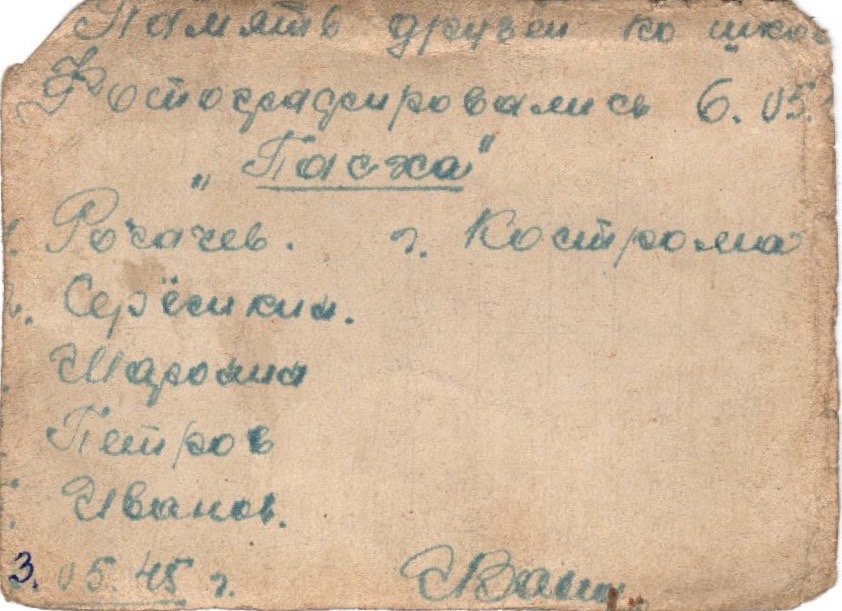 Память друзей по шко
Фотографировались 6.05.
„Пасха"
Рогачев. г. Кострома
Серёшкин.
Шаронин
Петров
Иванов.
3. 05. 45 г.